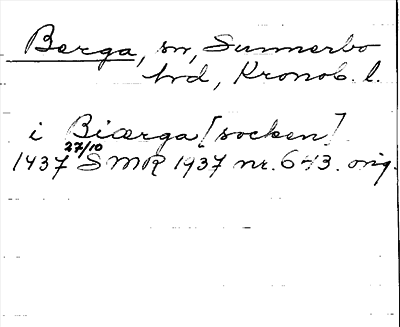 Berga, sn, Sunnerbo
hd, Kronob. l.
i Biærga [socken]
1437 27/10 SMR 1937 nr. 643. orig.